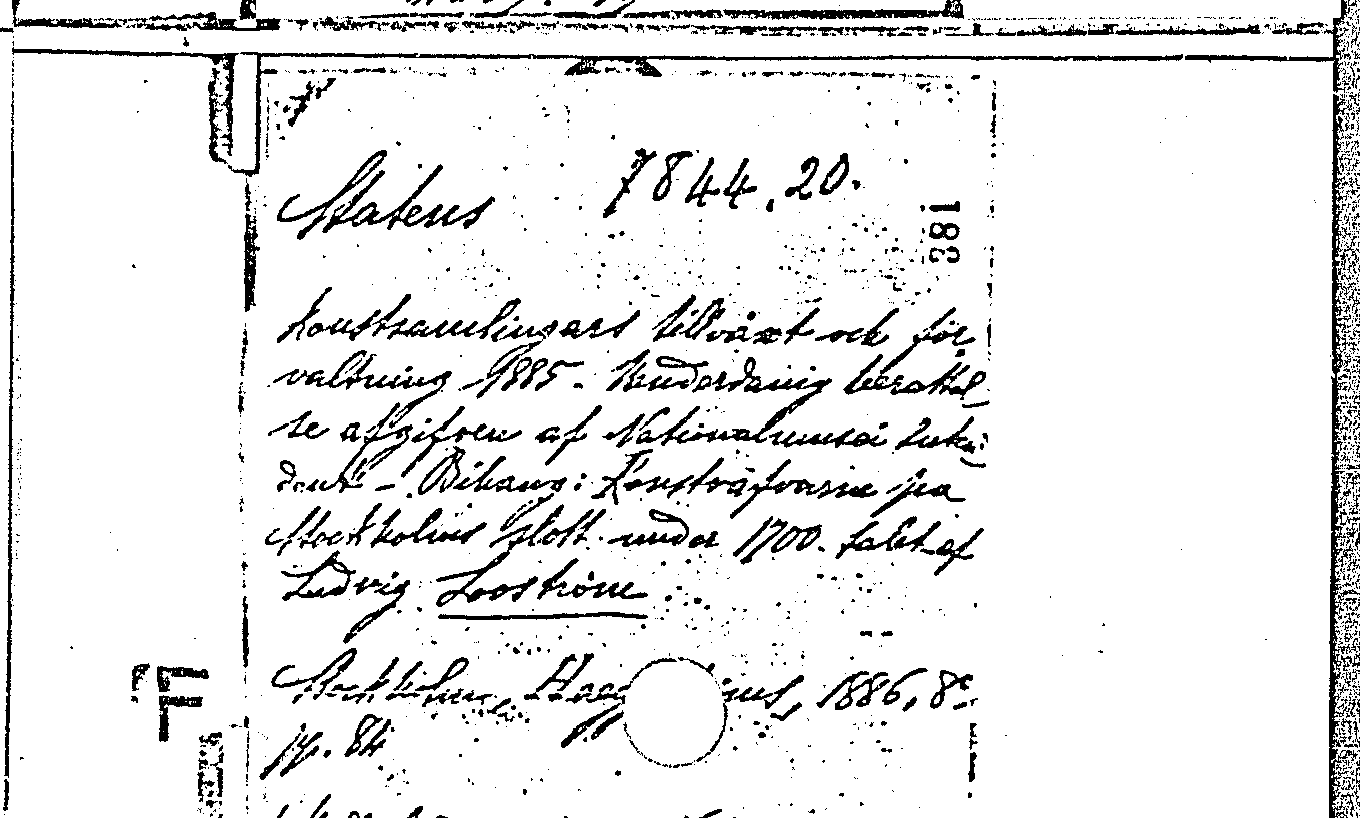 Statens 7844.20.
381
konstsamlingars tillväxt och för
valtning 1885. Underdånig berättel
se afgifven af Nationalmusei Inten
dent - Bihang: Konstväfvarne på
Stockholms slott under 1700. talet af
Ludvig Looström
Stockholm, 1886, 8º
pp. 84
F